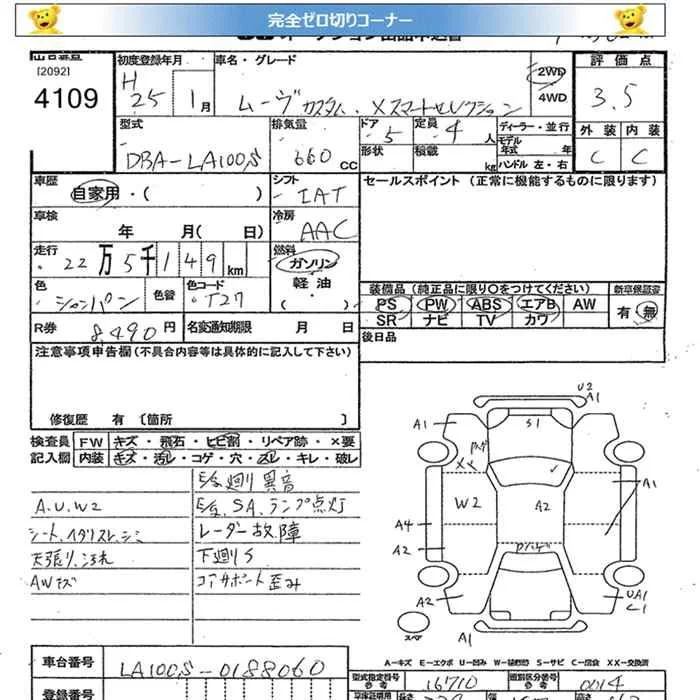 完全ゼロ切りコーナー
[2092]
4109
初度登録年月 H 25 1月
車名・グレード ムーヴカスタム.Xスマートセレクション
2WD
4WD
評価点 3.5
外装 内装
C C
型式 DBA-LA100S
排気量 660 CC
ドア 5
形状
定員 4 人
積載 kg
ディーラー・並行
モデル年式 年
ハンドル 左・右
車歴 自家用・( )
シフト IAT
セールスポイント (正常に機能するものに限ります)
車検 年 月( 日)
冷房 AAC
走行 22万5千149km
燃料 ガソリン
軽油
・( )
色 シャンパン 色管
色コード T27
装備品 (純正品に限り○をつけてください)
PS PW ABS エアB AW
SR ナビ TV カワ
新車保証書
有・無
R券 8,490円 名変通知期限 月 日
後日品
注意事項申告欄 (不具合内容等は具体的に記入して下さい)
修復歴 有〔箇所 〕
検査員 FW キズ・飛石・ヒビ割・リペア跡・×要
記入欄 内装 キズ・汚レ・コゲ・穴・スレ・キレ・破レ
E/G廻り異音
A.U.W2 E/G、SAランプ点灯
シート、ヘダリスレ、シミ レーダー故障
天張り、汚れ 下廻りS
AWキズ コアサポート歪み
U2
A1
A1
S1
XX
A1
W2
A2
A4
A2
A2
UA1
C1
スペア
A1
A-キズ E-エクボ U-凹み W-補修跡 S-サビ C-腐食 XX-交換済
車台番号 LA100S-0188060
型式指定番号 参考 16710
類別区分番号 参考 0014
登録番号